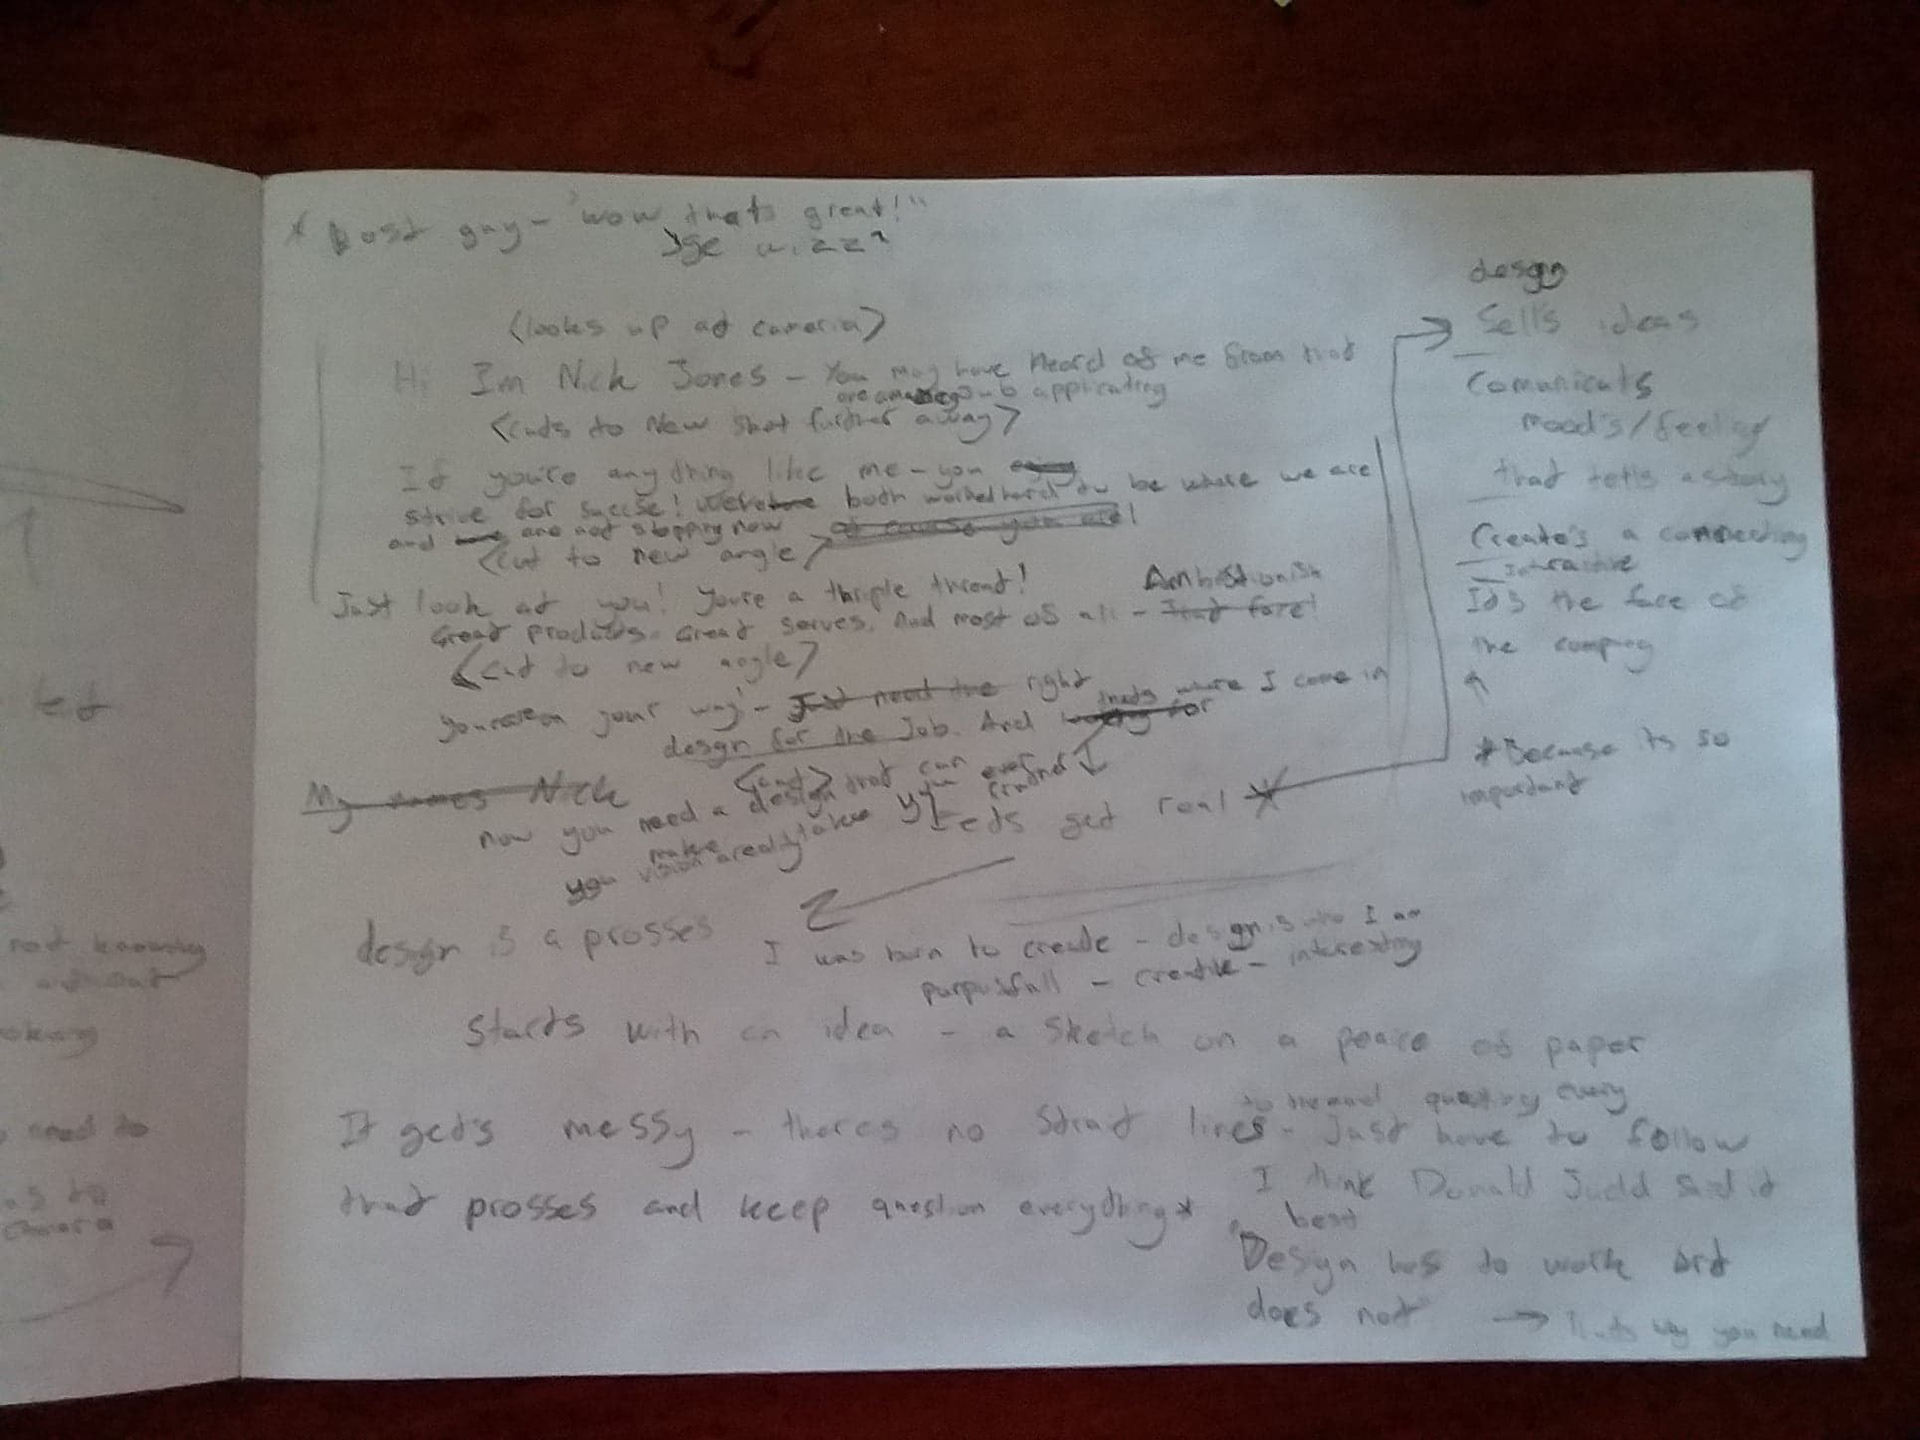 led
not knowing
need to
as to
camera
guy - "wow thats great!"
(looks up at camaria)
Hi Im Nick Jones - You may have Heard of me from that
applicating
<cuts to New shot further away>
If you're anything like me - you
strive for succse! We've both worked hard to be where we are
and are not stopping now of course you are!
<cut to new angle>
Just look at you! You're a thriple threat! Ambistionish
Great products. Great serves. And most of all - that fore!
<cut to new angle>
your way! - Just need the right thats where I come in
design for the Job. And looking for
My names Nick
<cut> that can
now you need a design
make
you vision
Lets get real
design is a prosses
I was born to create - design is who I am
purpusfull - creative - interesting
Starts with an idea - a sketch on a peace of paper
It get's messy - theres no strat lines - Just have to follow
every
that prosses and keep question everything*
I think Donald Judd said it
best
"Design has to work art
does not" → Thats why you need
design
Sells ideas
Comunicats
mood's/feeling
that tells a story
Create's a connecting
Interactive
It's the face of
the compny
*Because its so
important